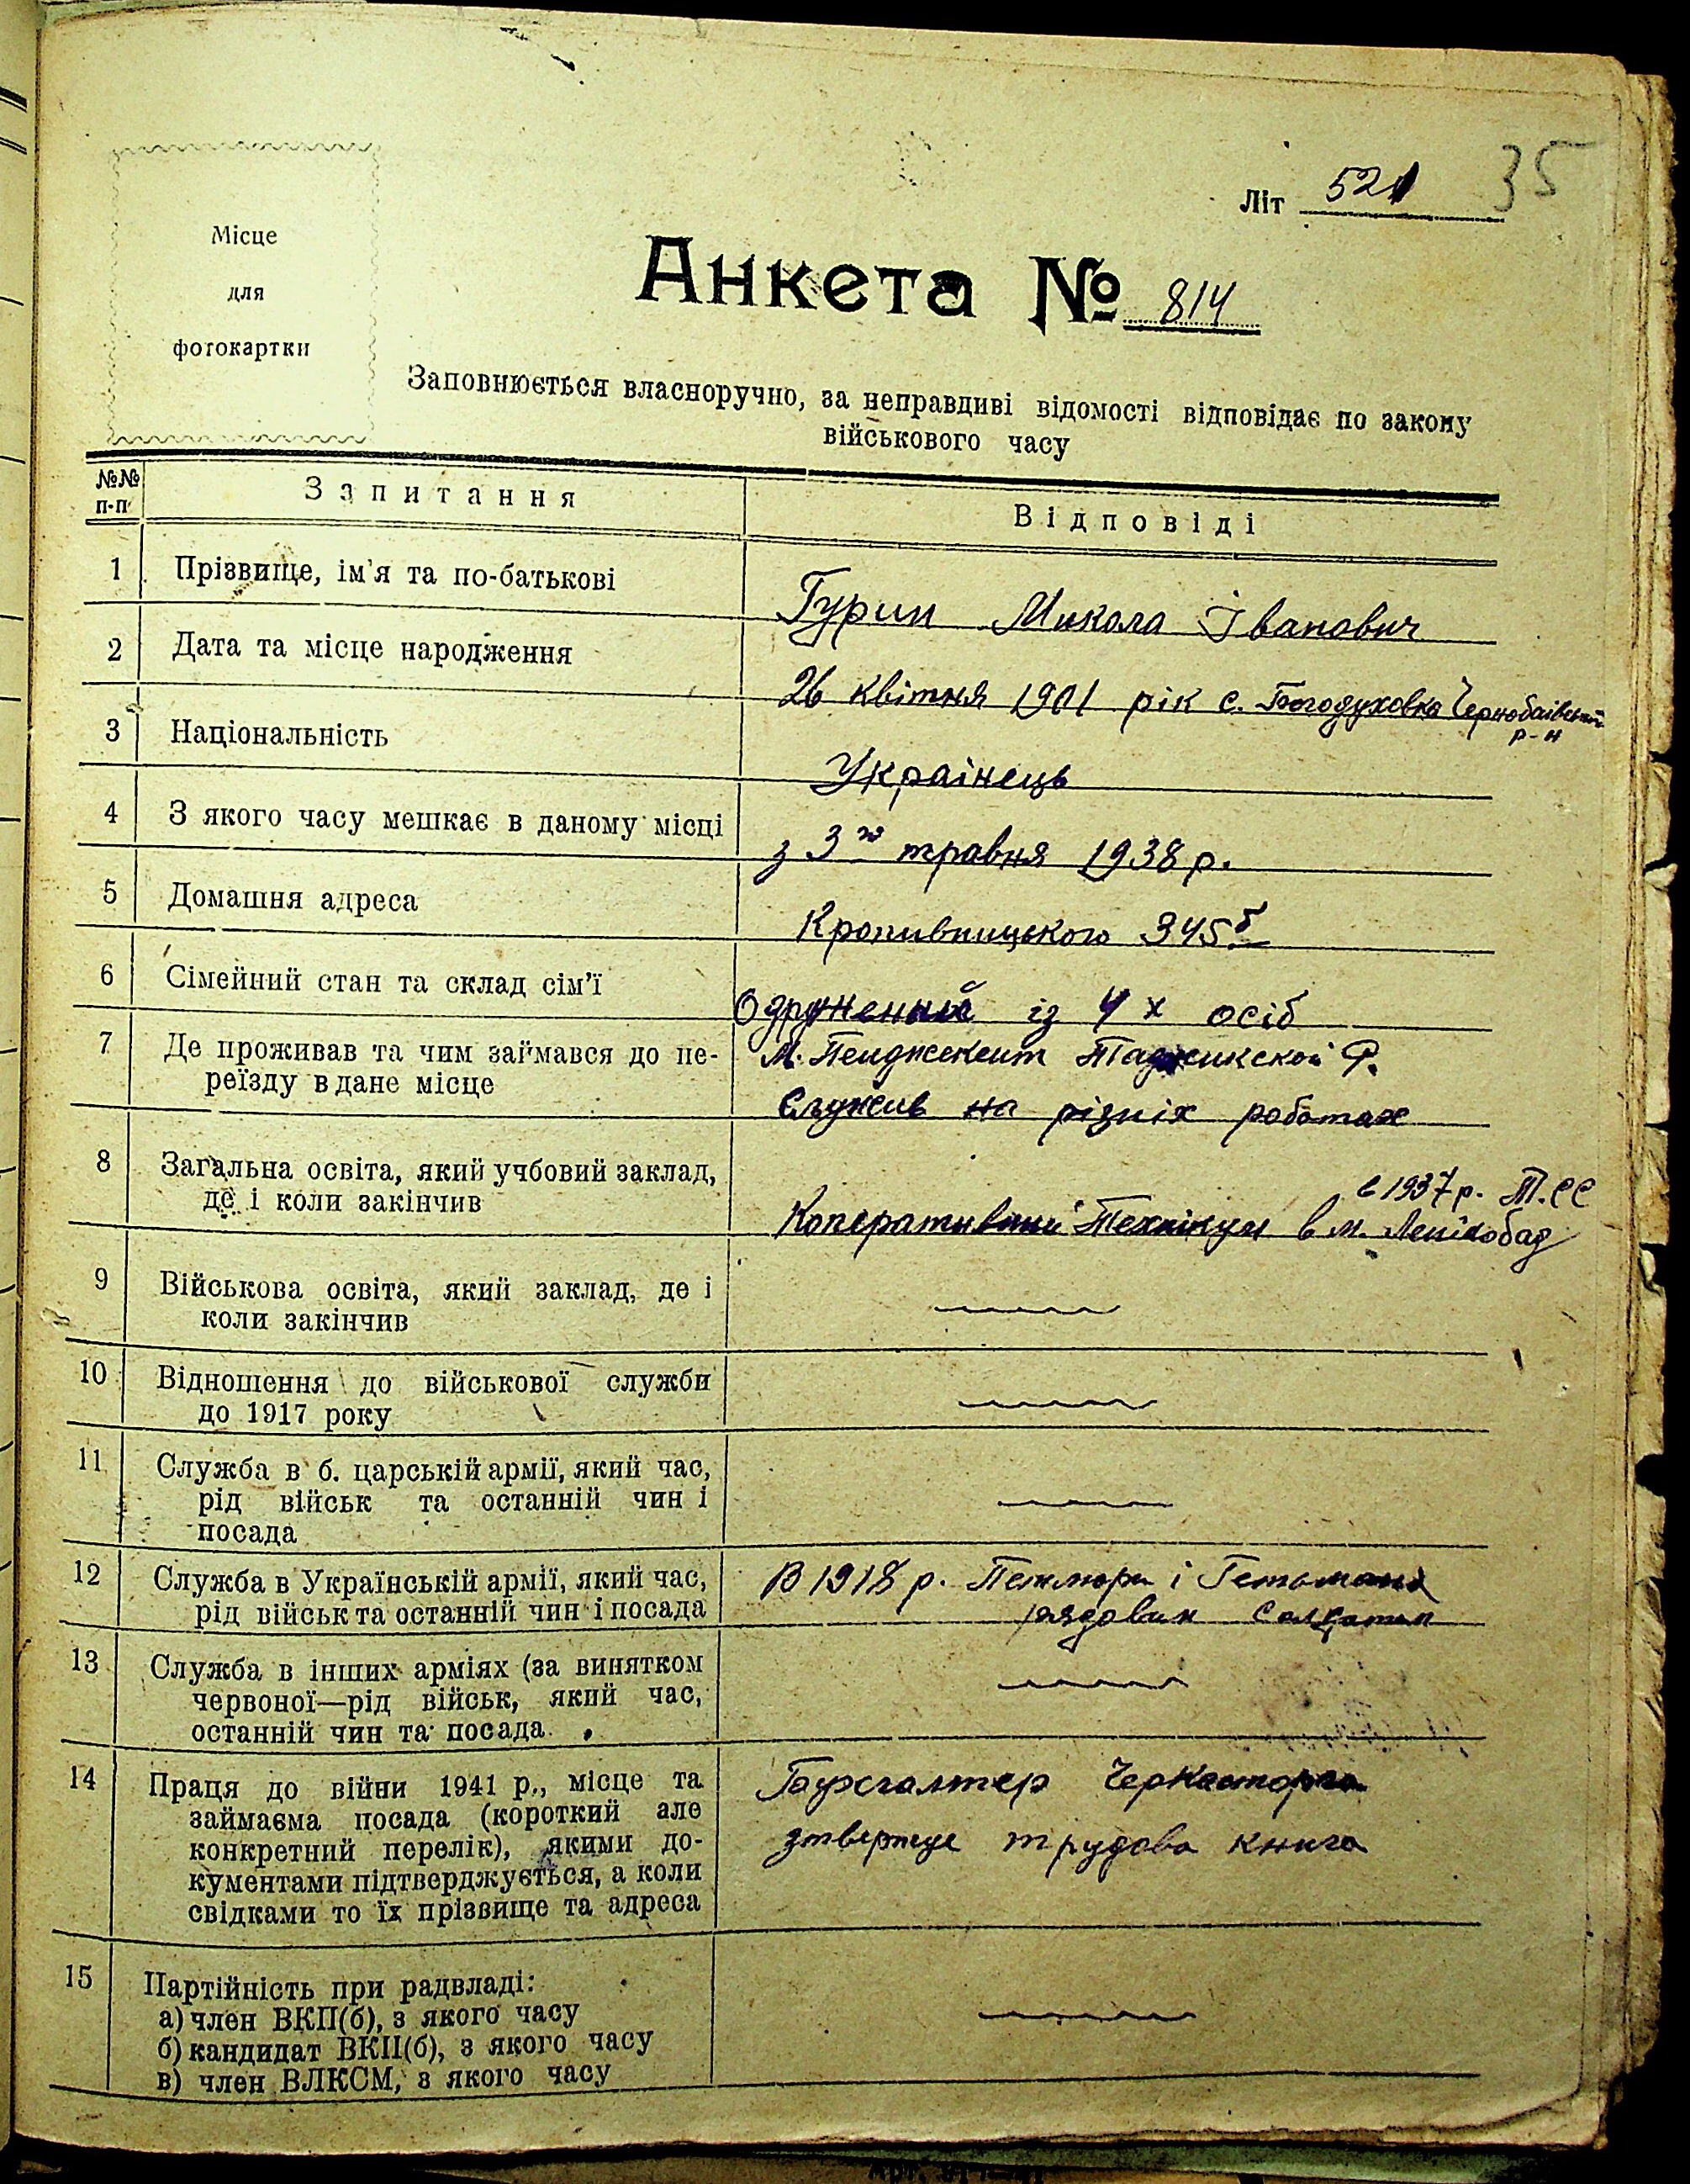 35
Літ 521
Місце
для
фотокартки
Анкета № 814
Заповнюється власноручно, за неправдиві відомості відповідає по закону
військового часу
№№ п-п
Запитання
Відповіді
1 Прізвище, ім'я та по-батькові
Гурин Микола Іванович
2 Дата та місце народження
26 квітня 1901 рік с. Богодуховка Чернобаівський
р-н
3 Національність
Украінець
4 З якого часу мешкає в даному місці
з 3го травня 1938 р.
5 Домашня адреса
Кропивницького 345б
6 Сімейний стан та склад сім'ї
Одружений із 4х осіб
7 Де проживав та чим займався до пе-
реїзду в дане місце
М. Пенджекент Таджикской Р.
Служив на різніх роботах
8 Загальна освіта, який учбовий заклад,
де і коли закінчив
в 1937 р. Т.СС
Коперативний Технікум в м. Ленінобад
9 Військова освіта, який заклад, де і
коли закінчив
10 Відношення до військової служби
до 1917 року
11 Служба в б. царській армії, який час,
рід військ та останній чин і
посада
12 Служба в Українській армії, який час,
рід військ та останній чин і посада
В 1918 р. Петлюри і Гетьмана
рядовим солдатом
13 Служба в інших арміях (за винятком
червоної—рід військ, який час,
останній чин та посада
14 Праця до війни 1941 р., місце та
займаєма посада (короткий але
конкретний перелік), якими до-
кументами підтверджується, а коли
свідками то їх прізвище та адреса
Бухгалтер Черкасторга
зтвержує трудова книга
15 Партійність при радвладі:
а) член ВКП(б), з якого часу
б) кандидат ВКП(б), з якого часу
в) член ВЛКСМ, з якого часу